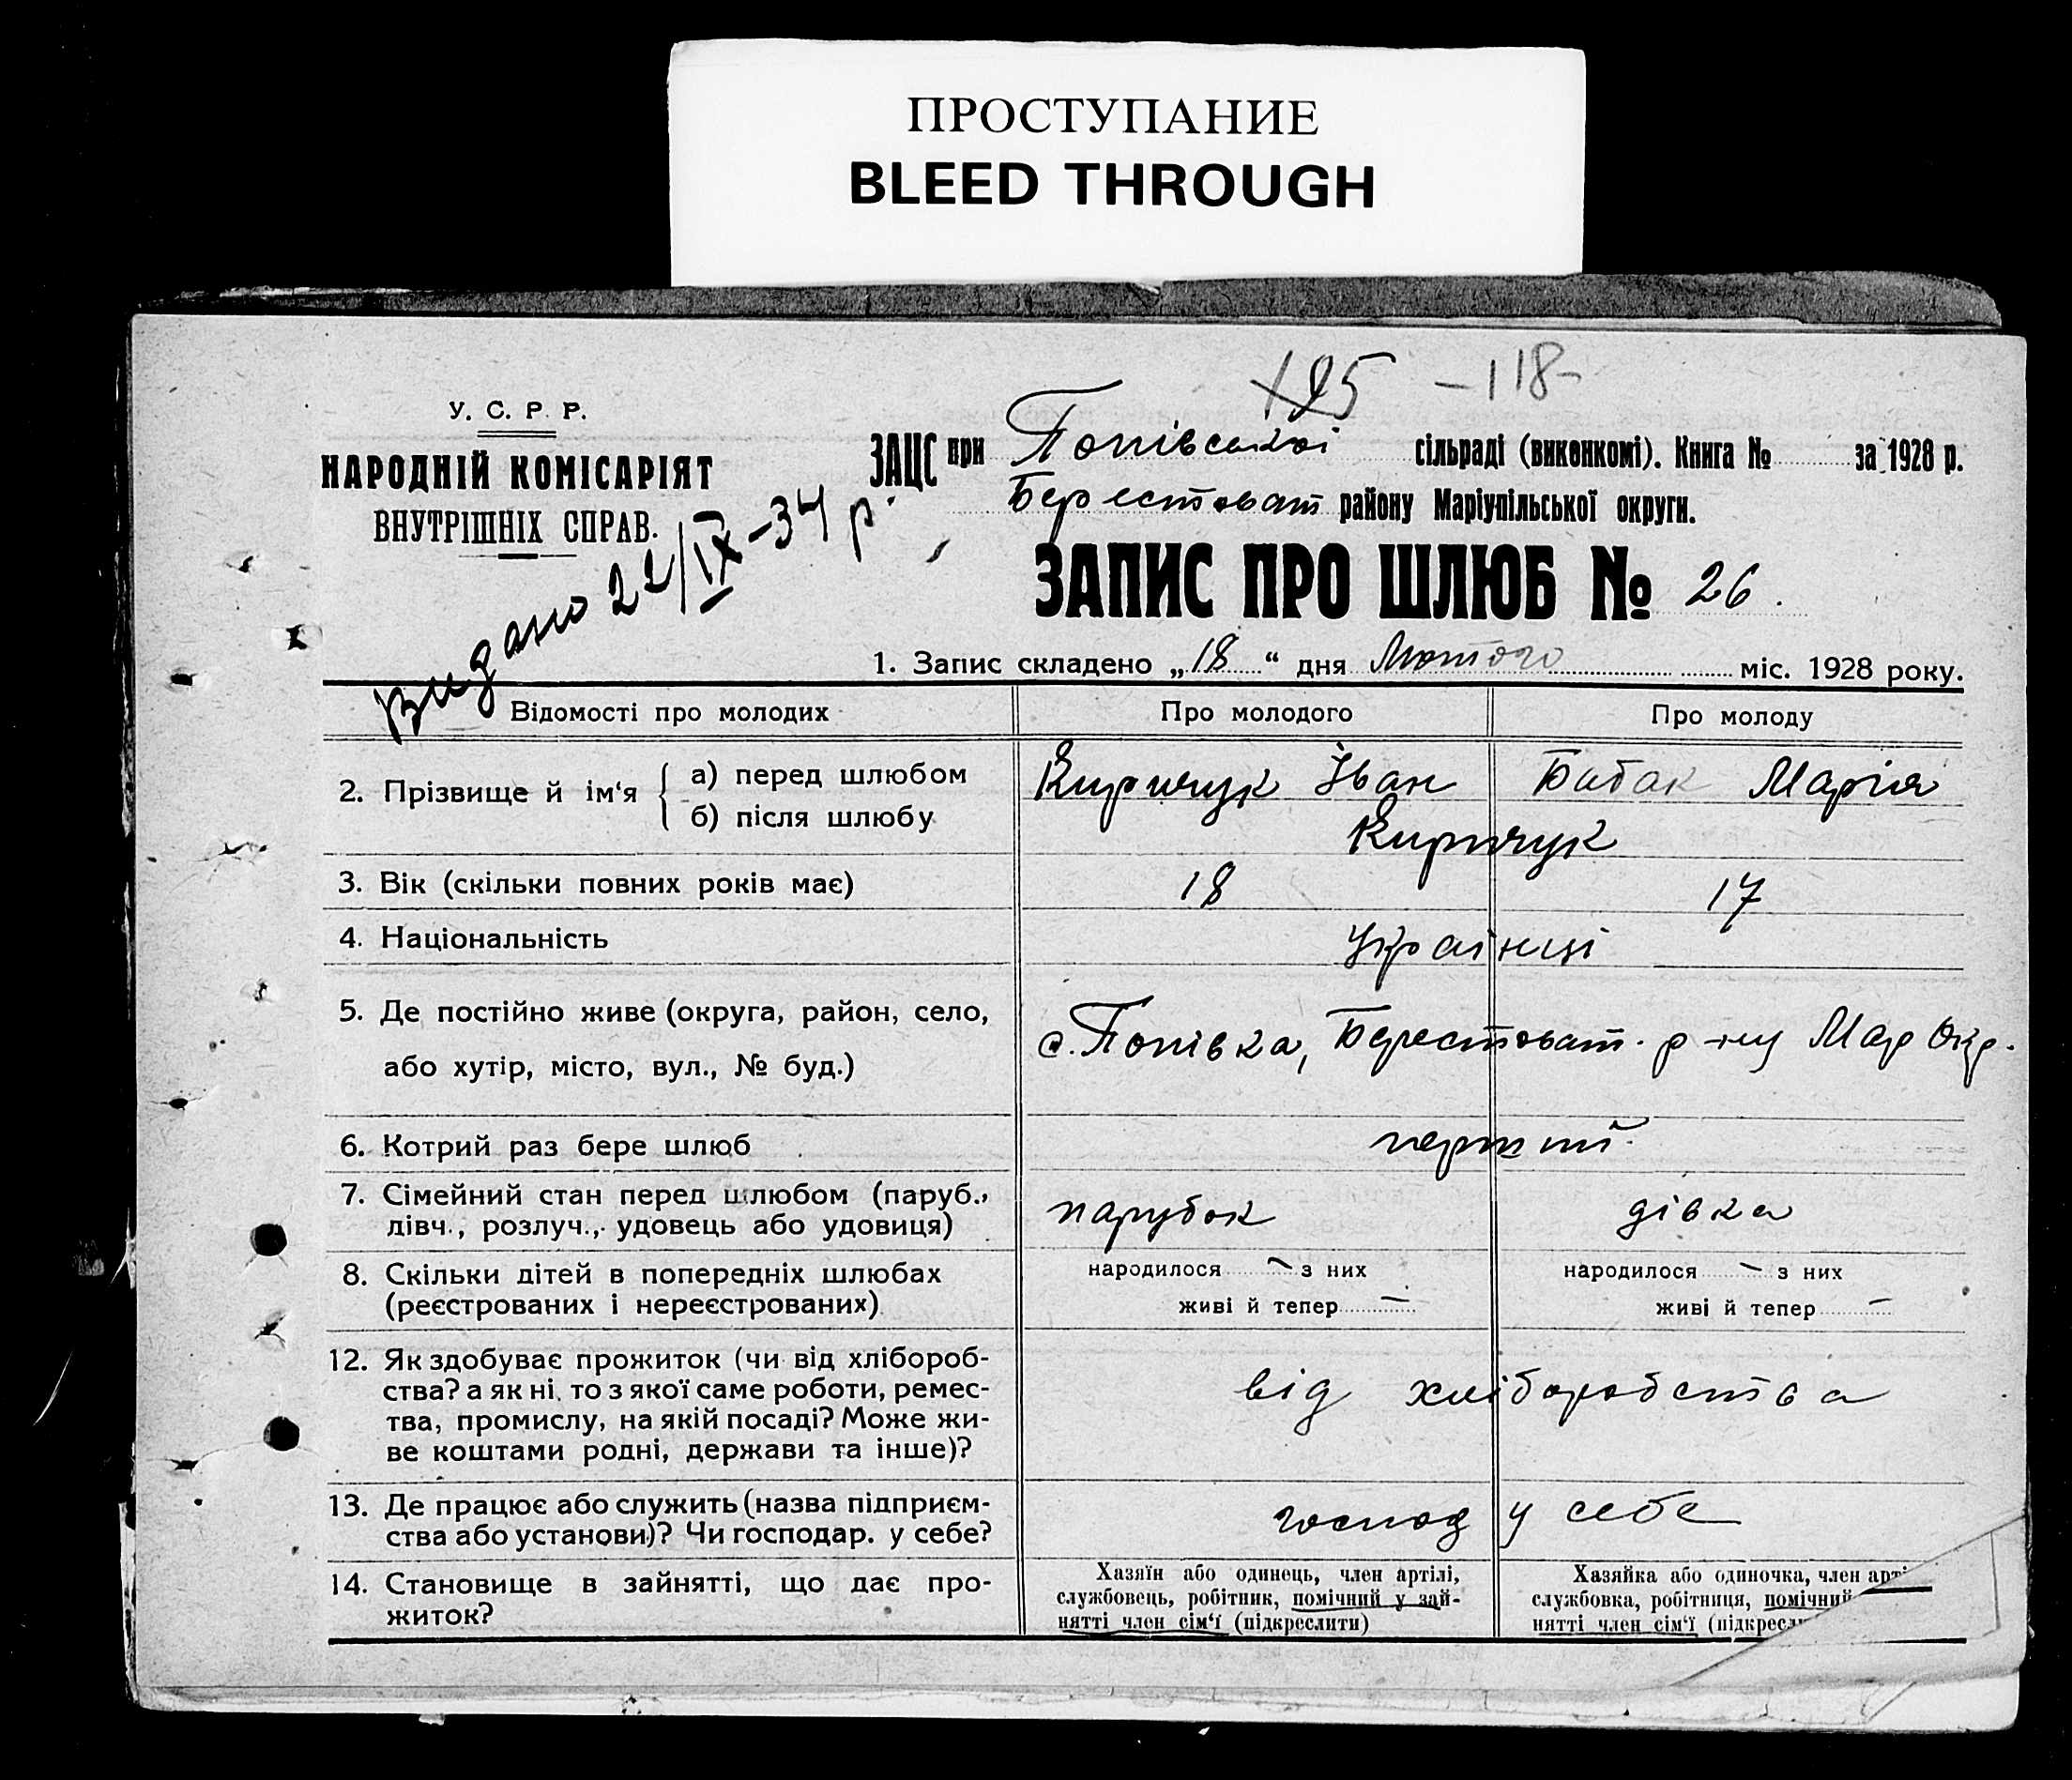 ПРОСТУПАНИЕ
BLEED THROUGH
125 -118-
У. С. Р. Р.
НАРОДНІЙ КОМІСАРІЯТ
ВНУТРІШНІХ СПРАВ.
Видано 22/IX-34 р.
ЗАЦС при Попівській сільраді (виконкомі). Книга № за 1928 р.
Берестоват району Маріупільської округи.
ЗАПИС ПРО ШЛЮБ № 26.
1. Запис складено „18“ дня Лютого міс. 1928 року.
Відомості про молодих Про молодого Про молоду
2. Прізвище й ім‘я { а) перед шлюбом Киричук Іван Бабак Марія
б) після шлюбу Киричук
3. Вік (скільки повних років має) 18 17
4. Національність Українці
5. Де постійно живе (округа, район, село, с. Попівка, Берестоват. р-ну Мар Окр.
або хутір, місто, вул., № буд.)
6. Котрий раз бере шлюб перший.
7. Сімейний стан перед шлюбом (паруб., парубок дівка
дівч., розлуч., удовець або удовиця)
8. Скільки дітей в попередніх шлюбах народилося — з них народилося — з них
(реєстрованих і нереєстрованих) живі й тепер — живі й тепер —
12. Як здобуває прожиток (чи від хлібороб-
ства? а як ні, то з якої саме роботи, ремес- від хліборобства
тва, промислу, на якій посаді? Може жи-
ве коштами родні, держави та інше)?
13. Де працює або служить (назва підприєм- господ у себе
ства або установи)? Чи господар. у себе?
14. Становище в зайнятті, що дає про- Хазяїн або одинець, член артілі, Хазяйка або одиночка, член арті
житок? службовець, робітник, помічний у зай- службовка, робітниця, помічний
нятті член сім‘ї (підкреслити) нятті член сім‘ї (підкресл